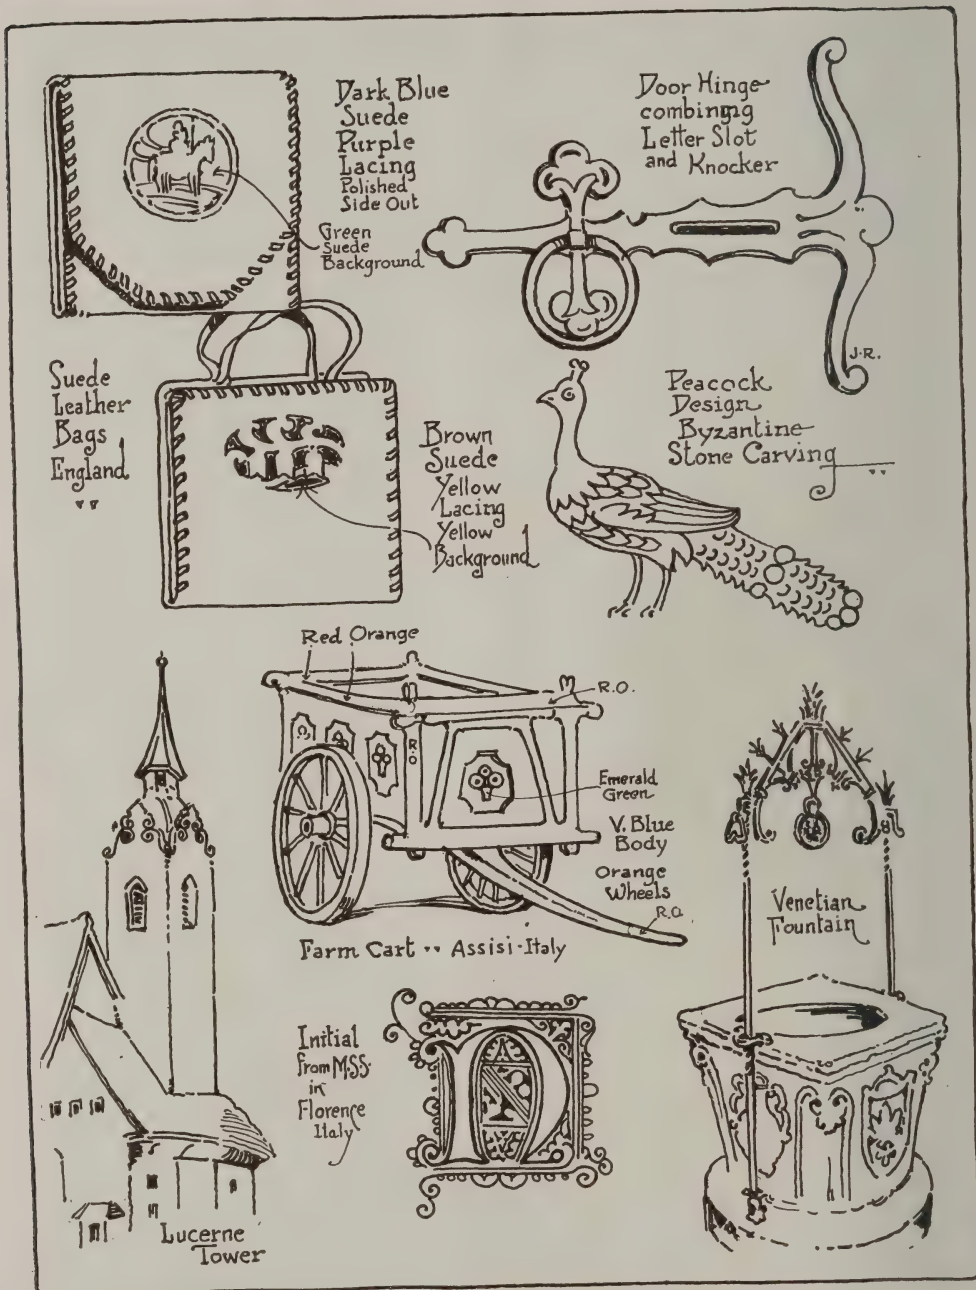 Dark Blue
Suede
Purple
Lacing
Polished
Side Out
Green
Suede
Background
Door Hinge
combining
Letter Slot
and Knocker
J.R.
Suede
Leather
Bags
England
Brown
Suede
Yellow
Lacing
Yellow
Background
Peacock
Design
Byzantine
Stone Carving
Red Orange
R.O.
R.O
Emerald
Green
V. Blue
Body
Orange
Wheels
R.O.
Farm Cart .. Assisi-Italy
Venetian
Fountain
Initial
from M.S.S.
in
Florence
Italy
Lucerne
Tower